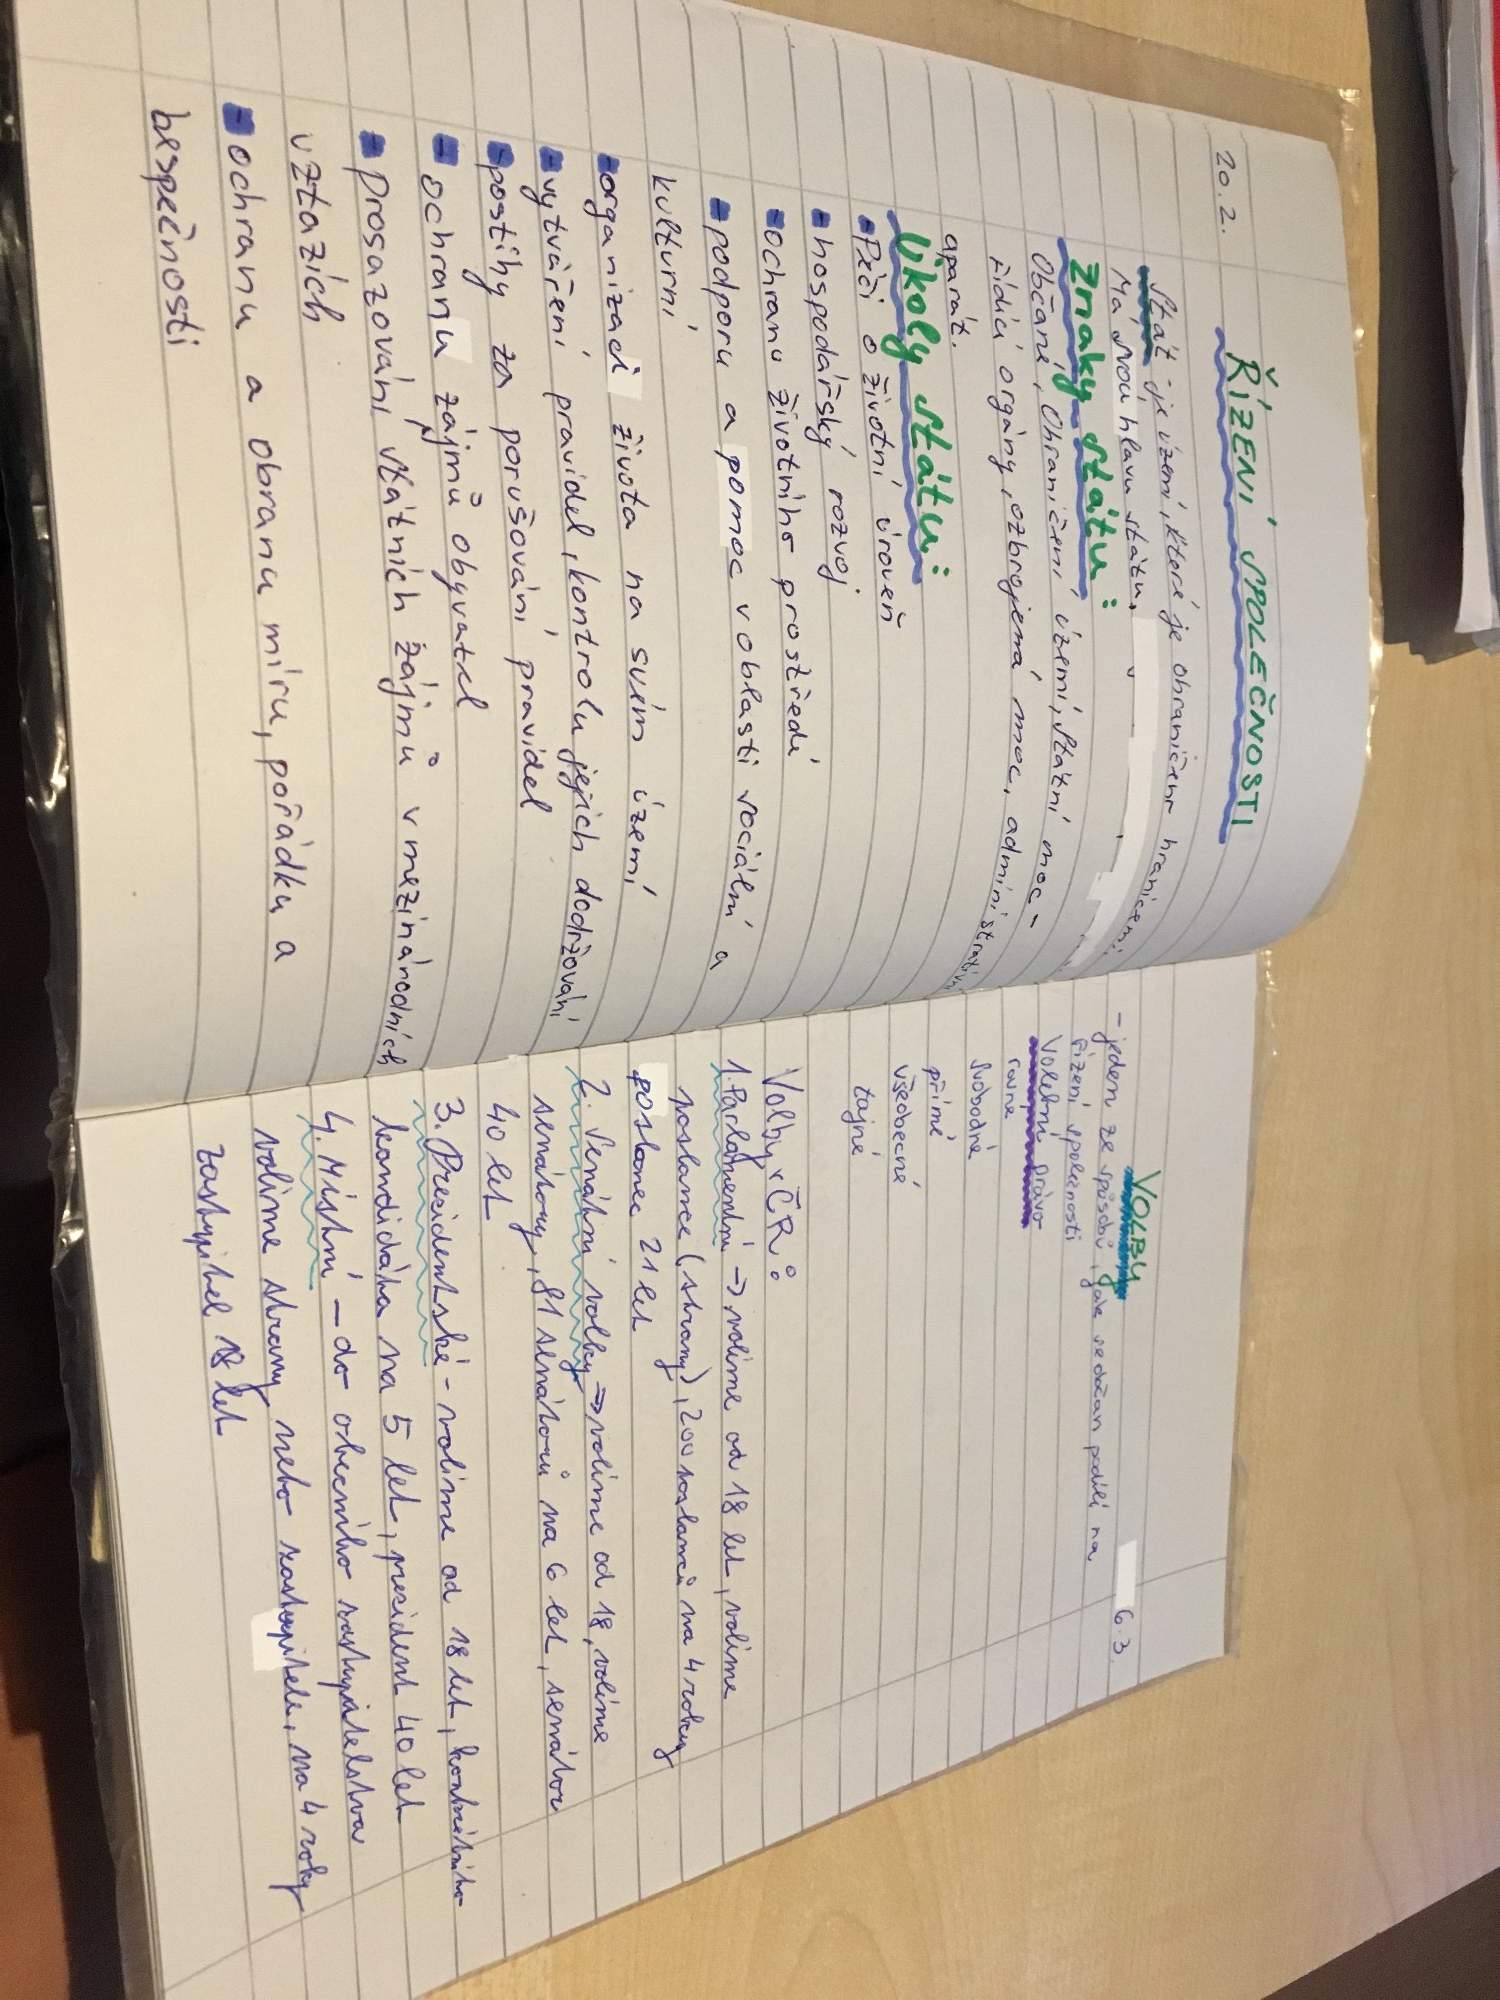 20.2.
ŘÍZENÍ SPOLEČNOSTI
Stát - je území, které je ohraničeno hranicemi,
Má svou hlavu státu.
Znaky státu:
Občané, Ohraničení území, státní moc -
řídící orgány, ozbrojená moc, administrativní
aparát.
Úkoly státu:
- Péči o životní úroveň
- hospodářský rozvoj
- ochranu životního prostředí
- podporu a pomoc v oblasti sociální a
kulturní
- organizaci života na svém území
- vytváření pravidel, kontrolu jejich dodržování
- postihy za porušování pravidel
- ochranu zájmů obyvatel
- Prosazování státních zájmů v mezinárodních
vztazích
- ochranu a obranu míru, pořádku a
bespečnosti
6.3.
VOLBY
- jeden ze způsobů, jak se občan podílí na
řízení společnosti
Volební právo
rovné
svobodné
přímé
všeobecné
tajné
Volby v ČR:
1. Parlamentní → volíme od 18 let, volíme
poslance (strany), 200 poslanců na 4 roky
poslanec 21 let
2. Senátní volby → volíme od 18, volíme
senátory, 81 senátorů na 6 let, senátor
40 let
3. Prezidentské - volíme od 18 let, konkrétního
kandidáta na 5 let, prezident 40 let
4. Místní - do obecního zastupitelstva
volíme strany nebo zastupitele, na 4 roky
zastupitel 18 let